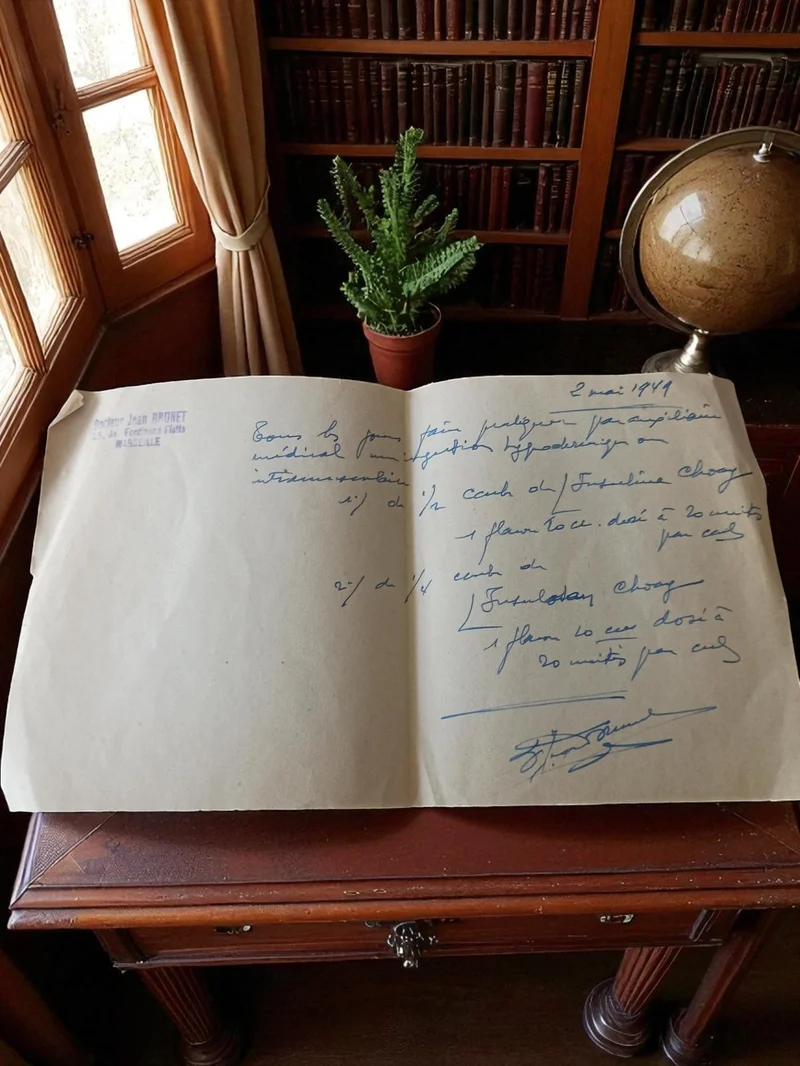 Docteur Jean BRUNET
MARSEILLE
2 mai 1949
Tous les jours faire pratiquer par auxiliaire
médical une injection hypodermique ou
intramusculaire
1°/ de 1/2 cent. cub de Insuline Choay
1 flacon 10 cc. dosé à 20 unités
par cub
2°/ de 1/4 cent. cub de
Choay
1 flacon 10 dosé à
20 unités par cub